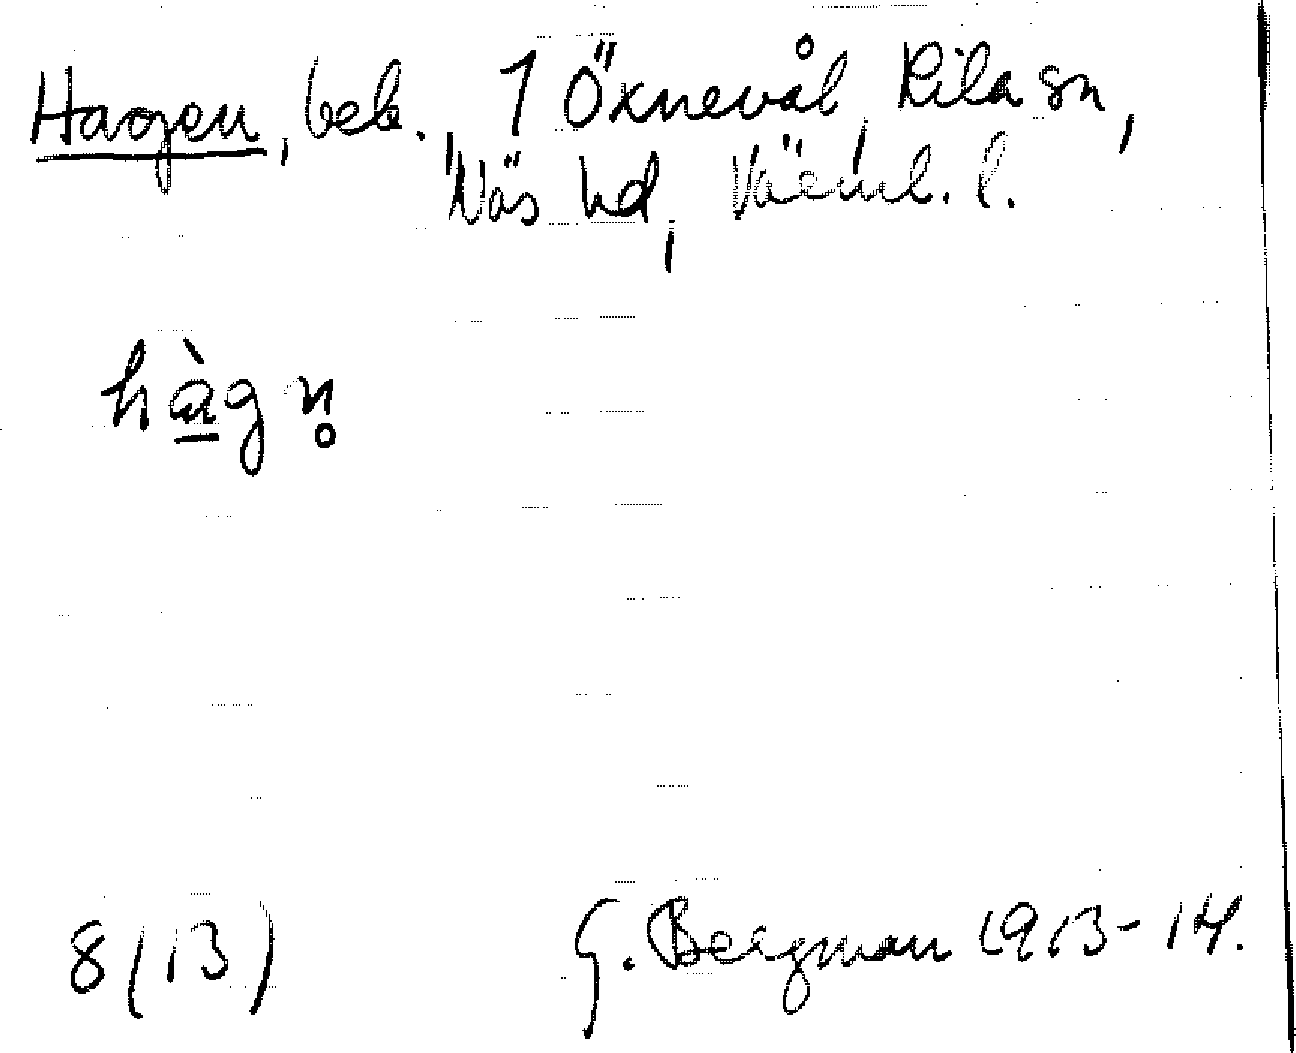 Hagen, beb. 1 Öxnevål, Kila sn,
Näs hd, Värml. l.
hàgn̥
8(13) G. Bergman 1913-14.